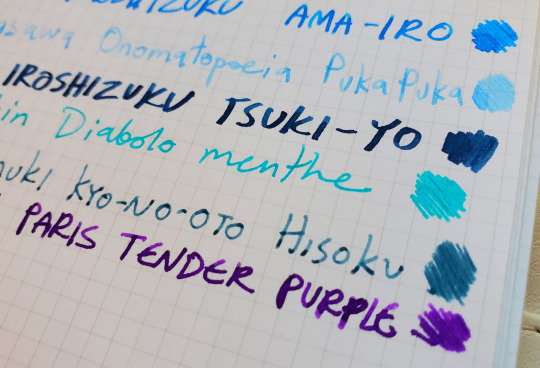 AMA-IRO
Onomatopoeia PukaPuka
IROSHIZUKU TSUKI-YO
Diabolo menthe
KYO-NO-OTO HISOKU
PARIS TENDER PURPLE